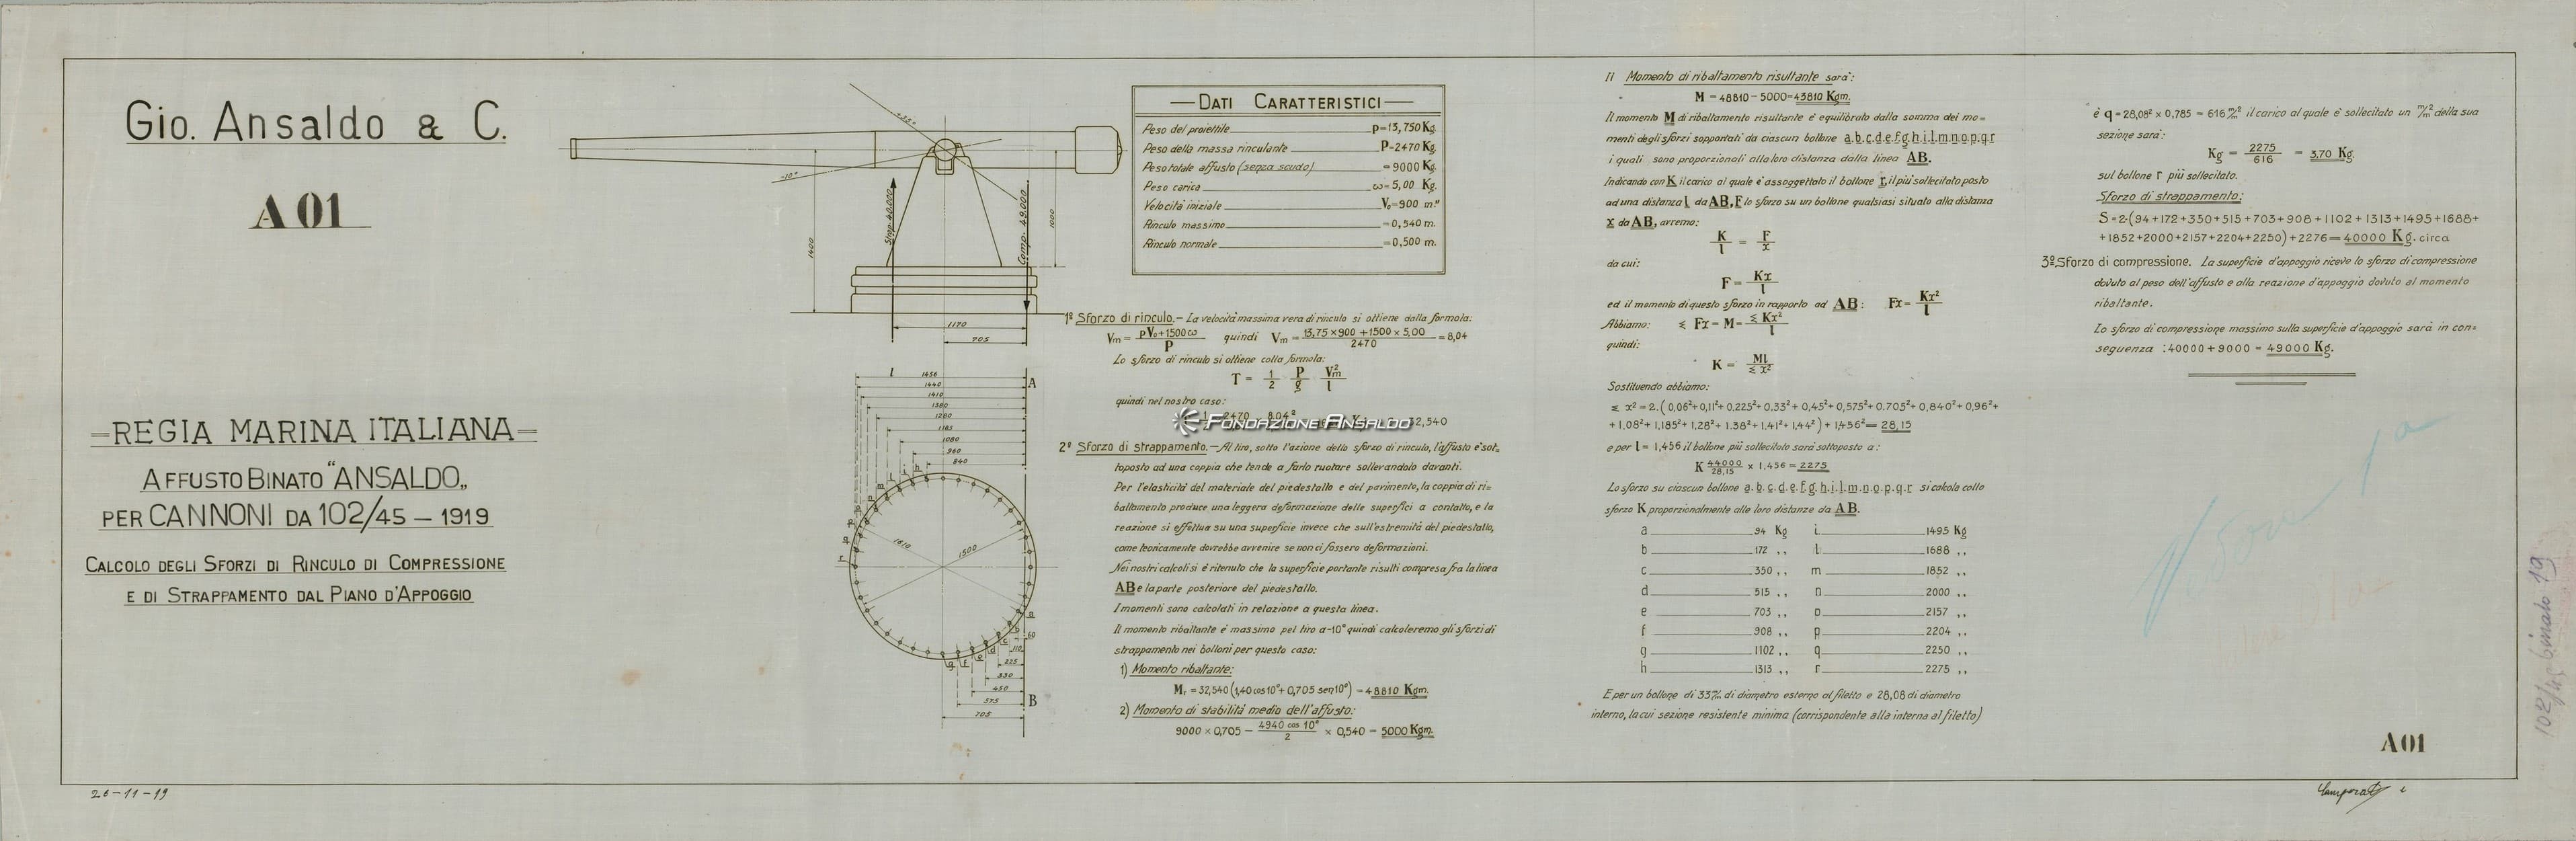 Gio. Ansaldo & C.
A 01
REGIA MARINA ITALIANA
AFFUSTO BINATO "ANSALDO„
PER CANNONI DA 102/45 – 1919
CALCOLO DEGLI SFORZI DI RINCULO DI COMPRESSIONE
E DI STRAPPAMENTO DAL PIANO D'APPOGGIO
+35°
-10°
Strap. 40.000
Comp. 49.000
1400
1000
1170
705
l
1456
1440
1410
1380
1280
1185
1080
960
840
A
1610
1500
60
110
225
330
450
575
705
B
DATI CARATTERISTICI
Peso del proiettile p=13,750 Kg.
Peso della massa rinculante P=2470 Kg.
Peso totale affusto (senza scudo) =9000 Kg.
Peso carica ω=5,00 Kg.
Velocità iniziale V₀=900 m."
Rinculo massimo =0,540 m.
Rinculo normale =0,500 m.
1° Sforzo di rinculo.– La velocità massima vera di rinculo si ottiene dalla formola:
Vm = pV₀+1500ω / P quindi Vm = 13,75×900+1500×5,00 / 2470 = 8,04
Lo sforzo di rinculo si ottiene colla formola:
T = 1/2 P/g V²m/l
quindi nel nostro caso:
2470 8,04² 32,540
FONDAZIONE ANSALDO
2° Sforzo di strappamento.– Al tiro, sotto l'azione dello sforzo di rinculo, l'affusto è sot=
toposto ad una coppia che tende a farlo ruotare sollevandolo davanti.
Per l'elasticità del materiale del piedestallo e del pavimento, la coppia di ri=
baltamento produce una leggera deformazione delle superfici a contatto, e la
reazione si effettua su una superficie invece che sull'estremità del piedestallo,
come teoricamente dovrebbe avvenire se non ci fossero deformazioni.
Nei nostri calcoli si è ritenuto che la superficie portante risulti compresa fra la linea
AB e la parte posteriore del piedestallo.
I momenti sono calcolati in relazione a questa linea.
Il momento ribaltante è massimo pel tiro a -10° quindi calcoleremo gli sforzi di
strappamento nei bolloni per questo caso:
1) Momento ribaltante:
Mr = 32,540 (1,40 cos 10° + 0,705 sen 10°) = 48810 Kgm.
2) Momento di stabilità medio dell'affusto:
9000 × 0,705 – 4940 cos 10° / 2 × 0,540 = 5000 Kgm.
Il Momento di ribaltamento risultante sarà:
M = 48810 – 5000 = 43810 Kgm.
Il momento M di ribaltamento risultante è equilibrato dalla somma dei mo=
menti degli sforzi sopportati da ciascun bollone a.b.c.d.e.f.g.h.i.l.m.n.o.p.q.r
i quali sono proporzionali alla loro distanza dalla linea AB.
Indicando con K il carico al quale è assoggettato il bollone r, il più sollecitato posto
ad una distanza l da AB, F lo sforzo su un bollone qualsiasi situato alla distanza
x da AB, avremo:
K/l = F/x
da cui:
F = Kx/l
ed il momento di questo sforzo in rapporto ad AB: Fx = Kx²/l
Abbiamo: Σ Fx = M = Σ Kx²/l
quindi:
K = Ml/Σ x²
Sostituendo abbiamo:
Σ x² = 2.(0,06²+0,11²+0,225²+0,33²+0,45²+0,575²+0.705²+0,840²+0,96²+
+1.08²+1,185²+1,28²+1.38²+1.41²+1,44²)+1,456² = 28,15
e per l = 1,456 il bollone più sollecitato sarà sottoposto a:
K 44000/28,15 × 1.456 = 2275
Lo sforzo su ciascun bollone a.b.c.d.e.f.g.h.i.l.m.n.o.p.q.r si calcola collo
sforzo K proporzionalmente alle loro distanze da AB.
a 94 Kg i 1495 Kg
b 172 ,, l 1688 ,,
c 350 ,, m 1852 ,,
d 515 ,, n 2000 ,,
e 703 ,, o 2157 ,,
f 908 ,, p 2204 ,,
g 1102 ,, q 2250 ,,
h 1313 ,, r 2275 ,,
E per un bollone di 33 m/m di diametro esterno al filetto e 28,08 di diametro
interno, la cui sezione resistente minima (corrispondente alla interna al filetto)
è q = 28,08² × 0,785 = 616 m/m² il carico al quale è sollecitato un m/m² della sua
sezione sarà:
Kg = 2275/616 = 3,70 Kg.
sul bollone r più sollecitato.
Sforzo di strappamento:
S=2.(94+172+350+515+703+908+1102+1313+1495+1688+
+1852+2000+2157+2204+2250)+2276 = 40000 Kg. circa
3° Sforzo di compressione. La superficie d'appoggio riceve lo sforzo di compressione
dovuto al peso dell'affusto e alla reazione d'appoggio dovuta al momento
ribaltante.
Lo sforzo di compressione massimo sulla superficie d'appoggio sarà in con=
seguenza : 40000 + 9000 = 49000 Kg.
A 01
102/45 binato 19